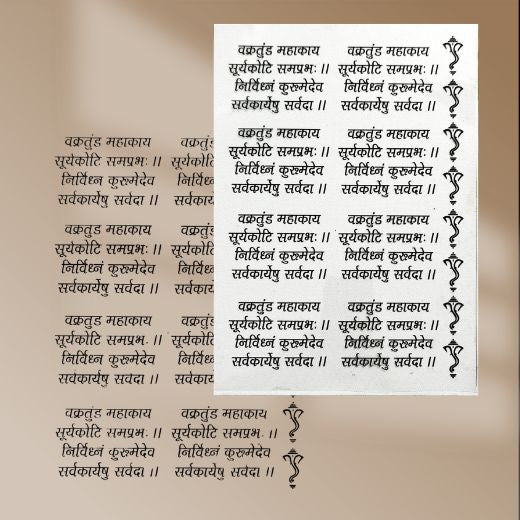 वक्रतुंड महाकाय
सूर्यकोटि समप्रभः ।।
निर्विध्नं कुरूमेदेव
सर्वकार्येषु सर्वदा ।।
वक्रतुंड महाकाय
सूर्यकोटि समप्रभः ।।
निर्विध्नं कुरूमेदेव
सर्वकार्येषु सर्वदा ।।
वक्रतुंड महाकाय
सूर्यकोटि समप्रभः ।।
निर्विध्नं कुरूमेदेव
सर्वकार्येषु सर्वदा ।।
वक्रतुंड महाकाय
सूर्यकोटि समप्रभः ।।
निर्विध्नं कुरूमेदेव
सर्वकार्येषु सर्वदा ।।
वक्रतुंड महाकाय
सूर्यकोटि समप्रभः ।।
निर्विध्नं कुरूमेदेव
सर्वकार्येषु सर्वदा ।।
वक्रतुंड महाकाय
सूर्यकोटि समप्रभः ।।
निर्विध्नं कुरूमेदेव
सर्वकार्येषु सर्वदा ।।
वक्रतुंड महाकाय
सूर्यकोटि समप्रभः ।।
निर्विध्नं कुरूमेदेव
सर्वकार्येषु सर्वदा ।।
वक्रतुंड महाकाय
सूर्यकोटि समप्रभः ।।
निर्विध्नं कुरूमेदेव
सर्वकार्येषु सर्वदा ।।
वक्रतुंड महाकाय
सूर्यकोटि समप्रभः ।।
निर्विध्नं कुरूमेदेव
सर्वकार्येषु सर्वदा ।।
वक्रतुंड महाकाय
सूर्यकोटि समप्रभः ।।
निर्विध्नं कुरूमेदेव
सर्वकार्येषु सर्वदा ।।
वक्रतुंड महाकाय
सूर्यकोटि समप्रभः ।।
निर्विध्नं कुरूमेदेव
सर्वकार्येषु सर्वदा ।।
वक्रतुंड महाकाय
सूर्यकोटि समप्रभः ।।
निर्विध्नं कुरूमेदेव
सर्वकार्येषु सर्वदा ।।
वक्रतुंड महाकाय
सूर्यकोटि समप्रभः ।।
निर्विध्नं कुरूमेदेव
सर्वकार्येषु सर्वदा ।।